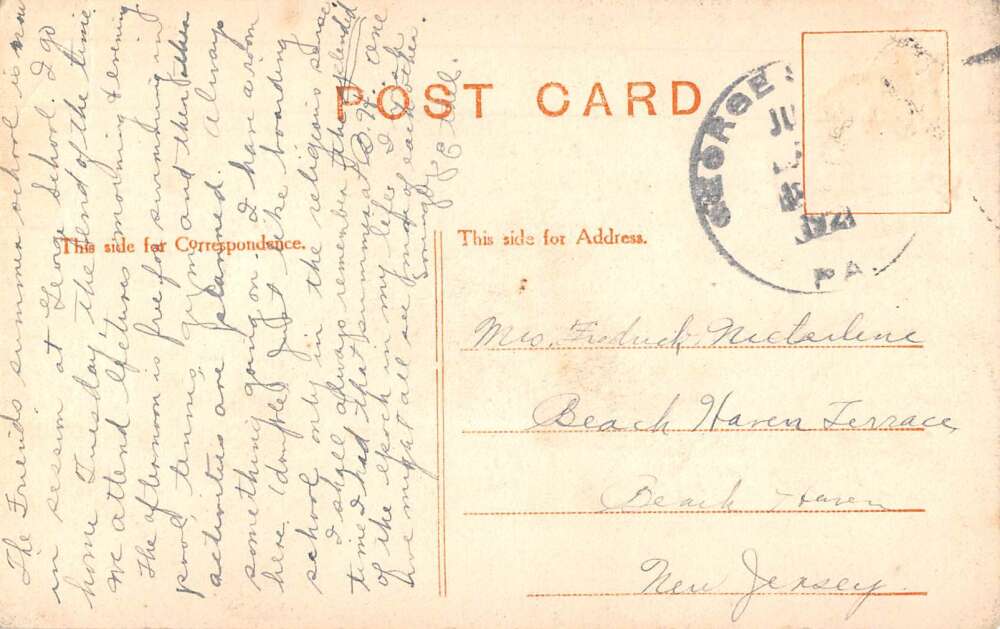 POST CARD
This side for Correspondence.
This side for Address.
GEORGE S
JU
1921
PA.
The Friends summer school is now
in session at George School. I go
home Tuesday, the end of the time.
We attend lectures morning & evening
The afternoon is free for swimming in
pool, tennis, gym and then other
activities are planned. Always
something going on. I have a room
here (double) just like boarding
school only in the religious sense.
I shall always remember the splendid
time I had that summer at B.H. one
of the epoch in my life. I wish
we might all see of each other
Mrs. Fredrick Macfarlene
Beach Haven Terrace
Beach Haven
New Jersey